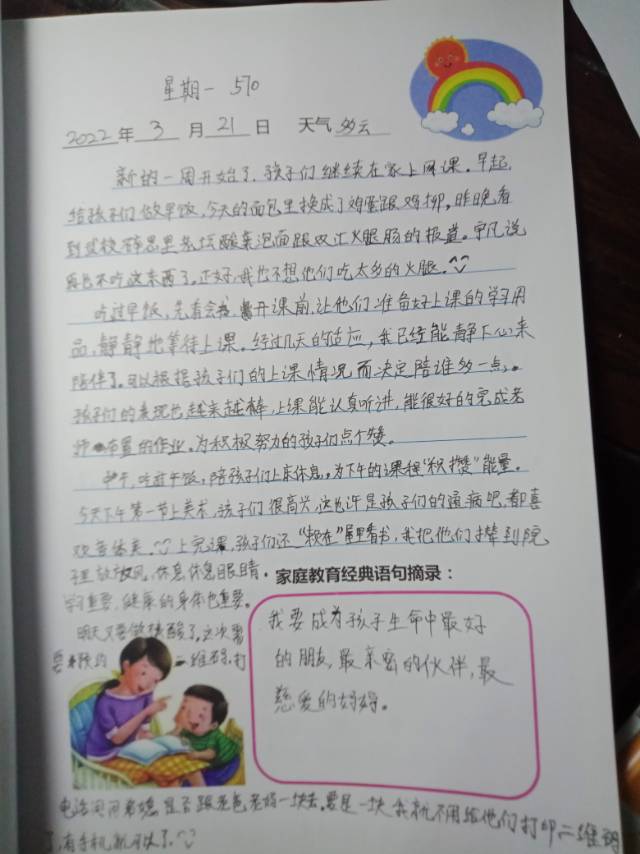 星期一 570
2022年3月21日 天气多云
新的一周开始了,孩子们继续在家上网课。早起,
给孩子们做早饭,今天的面包里换成了鸡蛋跟鸡柳。昨晚看
到学校群里老坛酸菜泡面跟双汇火腿肠的报道。宇凡说
再也不吃这东西了。正好,我也不想他们吃太多的火腿。
吃过早饭,先看会书,离开课前,让他们准备好上课的学习用
品,静静地等待上课。经过几天的适应,我已经能静下心来
陪伴了。可以根据孩子们的上课情况而决定陪谁多一点。
孩子们的表现也越来越棒,上课能认真听讲,能很好的完成老
师布置的作业。为积极努力的孩子们点个赞。
中午,吃过午饭,陪孩子们上床休息。为下午的课程“积攒”能量。
今天下午第一节上美术,孩子们很高兴,这也许是孩子们的通病吧,都喜
欢音体美。上完课,孩子们还“赖在”屋里看书,我把他们撵到院
子里放放风,休息休息眼睛。
学习重要,健康的身体也重要。
家庭教育经典语句摘录:
我要成为孩子生命中最好
的朋友,最亲密的伙伴,最
慈爱的妈妈。
明天又要做核酸了,这次需
要预约二维码,打
电话问问老姨,是否跟老爸老妈一块去。要是一块我就不用给他们打印二维码
了,有手机就可以了。